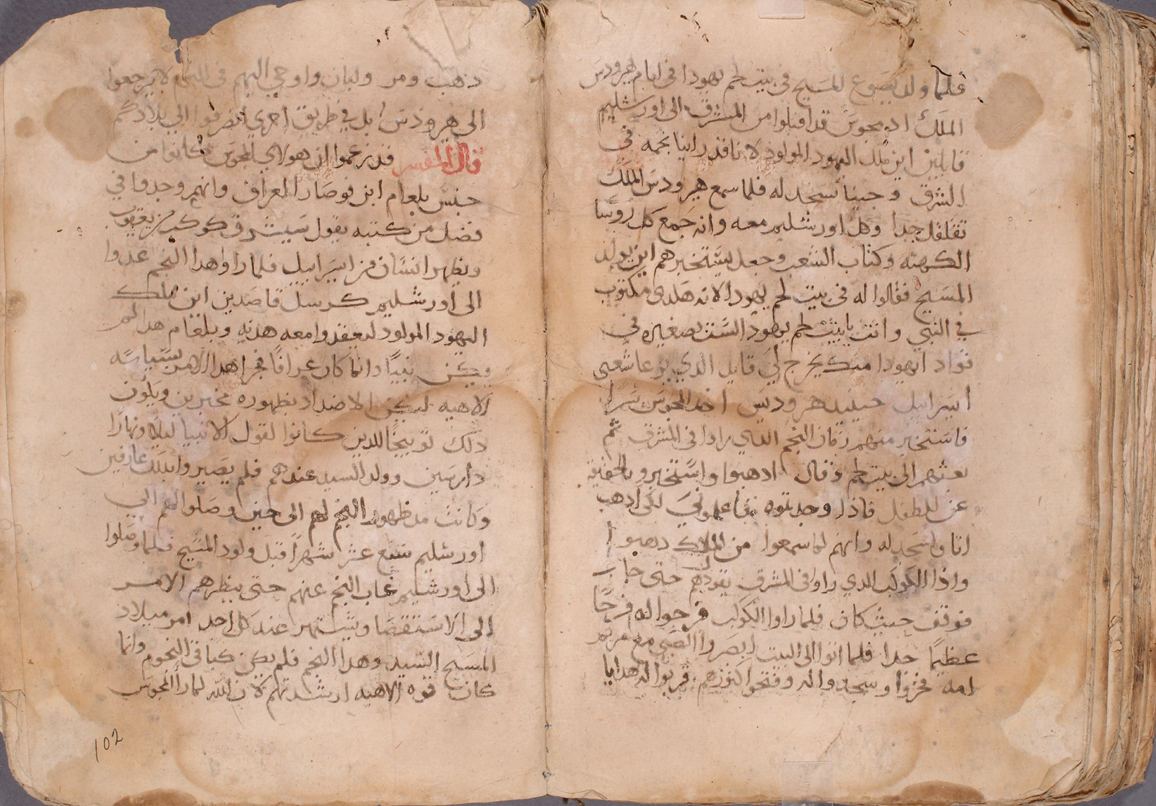 فلما ولد يسوع المسيح في بيت لحم يهودا في ايام هيرودس
الملك اذ مجوس قد اقبلوا من المشرق الى اورشليم
قايلين اين ملك اليهود المولود لاننا قد راينا نجمه في
الشرق وجينا نسجد له فلما سمع هيرودس الملك
تقلقل جدا وكل اورشليم معه وانه جمع كل روسا
الكهنه وكتاب الشعب وجعل يستخبرهم اين يولد
المسيح فقالوا له في بيت لحم يهودا لانه هكذى مكتوب
في النبي وانت يا بيت لحم يهودا لستى بصغيره في
قواد ايهودا منك يخرج لي قايد الذي يرعا شعبي
اسراييل حينيذ هيرودس اخذ المجوس سرا
فاستخبر منهم زمان النجم الذي راوا في المشرق ثم
بعثهم الى بيت لحم وقال اذهبوا واستخبروا بالحقيقه
عن الطفل فاذا وجدتوه فاعلموني لكى اذهب
انا واسجد له وانهم لما سمعوا من الملك ذهبوا
واذا الكوكب الذي راوا في المشرق يقودهم حتى جا
فوقف حيث كان فلما راوا الكوكب فرحوا له فرحا
عظيما جدا فلما اتوا الى البيت ابصروا الصبي مع مريم
امه فخروا وسجدوا له وفتحوا كنوزهم وقربوا له هدايا
ذهب ومر ولبان واوحي اليهم في المنام لا يرجعوا
الى هيرودس بل في طريق اخرى انصرفوا الى بلادهم
قال المفسر قد زعموا ان هولاي المجوس كانوا من
جنس بلعام ابن فوصار العراف وانهم وجدوا في
فضل من كتبه يقول سيشرق كوكب من يعقوب
ويظهر انسان من اسراييل فلما راوا هذا النجم غدوا
الى اورشليم كرسل قاصدين ابن ملك
اليهود المولود ليعقدوا معه هدنه وبلعام هذا لم
يكن نبيا وانما كان عرافا فجرا هذا الامر بسياسه
الاهيه ليكن الاضداد بظهوره مخبرين ويكون
ذلك توبيخا للذين كانوا لقول الانبيا ليلا ونهارا
دارسين وولد السيد عندهم فلم يصيروا بذلك عارفين
وكانت مد ظهور النجم لهم الى حين وصلوا هم الي
اورشليم سبع عشر شهرا قبل ولود المسيح فلما وصلوا
الى اورشليم غاب النجم عنهم حتى يظرهم الامر
الى الاستقصا ويشتهر عند كل احد امر ميلاد
المسيح السيد وهذا النجم فلم يكن كباقي النجوم وانما
كان قوه الاهيه ارشدتهم لان الله لما را المجوس
102